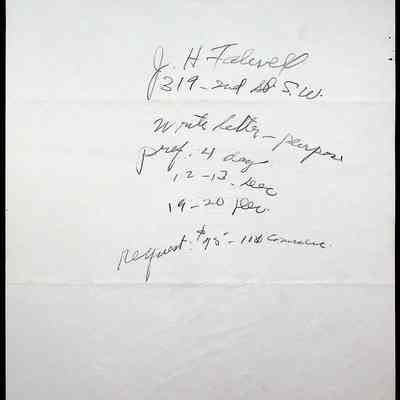 J. H
319 - 2nd St S.W.
Write letter - purpose
pref. 4 day
12-13. Dec
19-20 Dec.
request. $75 - 110